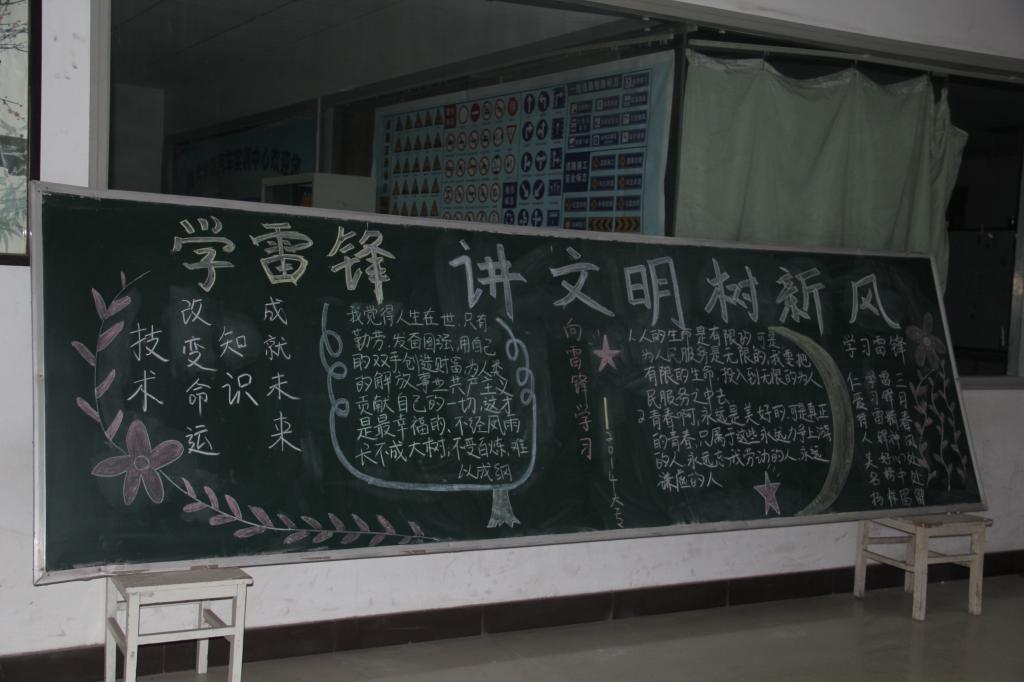 学雷锋 讲文明树新风
技术
改变命运
知识
成就未来
我觉得人生在世,只有
勤劳,发奋图强,用自己
的双手创造财富,为人类
的解放事业共产主义
贡献自己的一切,这才
是最幸福的,不经风雨
长不成大树,不受百炼,难
以成纲
向雷锋学习
1人的生命是有限的,可是
为人民服务是无限的,我要把
有限的生命,投入到无限的为人
民服务之中去
2青春啊,永远是美好的,可是真正
的青春,只属于这些永远力争上游
的人,永远忘我劳动的人,永远
谦虚的人
学习雷锋
三月春风处处
雷锋精神
学习雷锋好榜样
仁爱有人美名扬
道路施工
安全标志